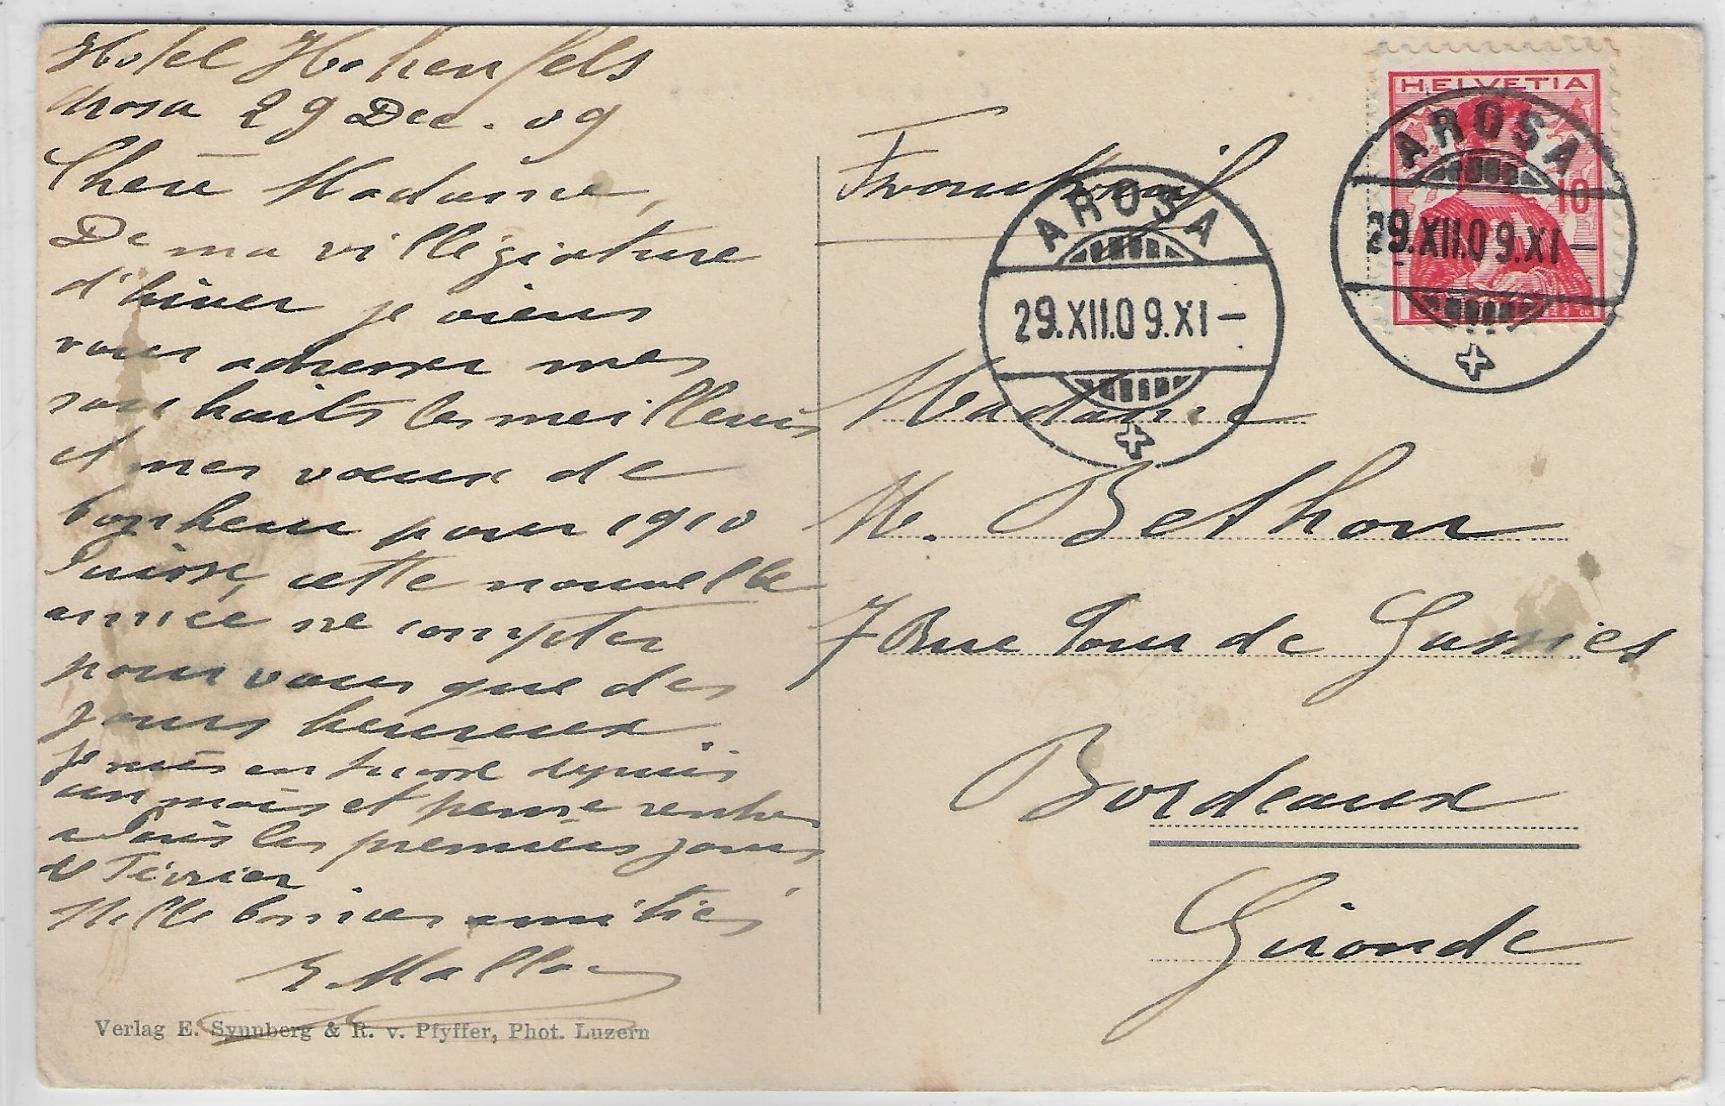 Hotel Hohenfels
Arosa 29 Dec. 09
Chère Madame,
De ma villégiature
d'hiver je viens
vous adresser mes
souhaits les meilleurs
et mes voeux de
bonheur pour 1910
Puisse, cette nouvelle
année ne compter
pour vous que des
jours heureux.
Je suis en Suisse depuis
un mois et pense rentrer
les premiers jours
de Février
Mille bonnes amitiés
E. Mallo
Verlag E. Synnberg & R. v. Pfyffer, Phot. Luzern
Frankreich
HELVETIA
10
AROSA
29.XII.09.XI-
AROSA
29.XII.09.XI-
Madame
M. Bethon
7 Rue Tour de Gassies
Bordeaux
Gironde